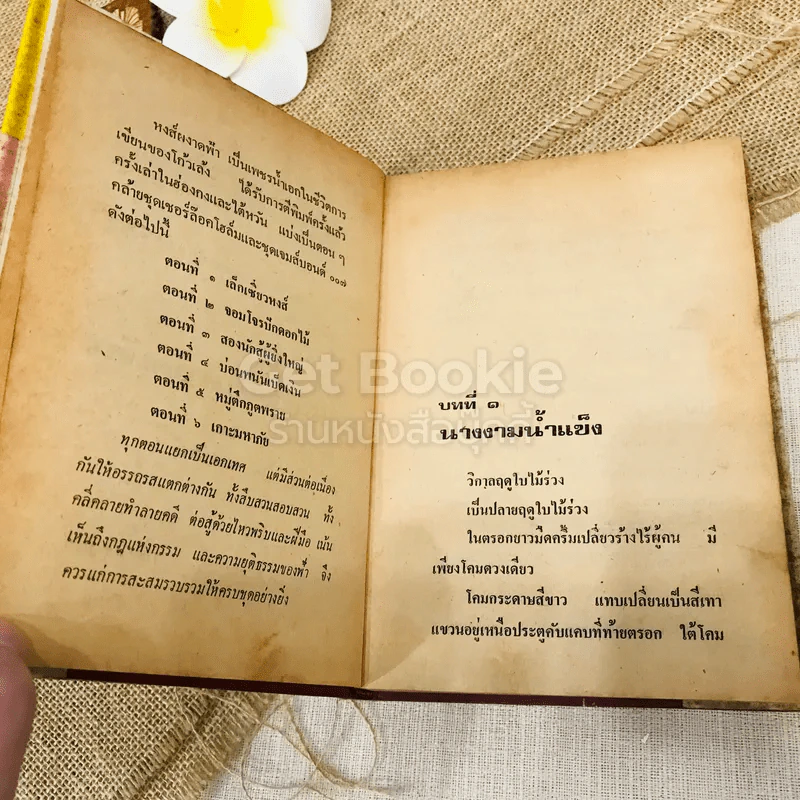 หงส์ผงาดฟ้า เป็นเพชรน้ำเอกในชีวิตการ
เขียนของโก้วเล้ง ได้รับการตีพิมพ์ครั้งแล้ว
ครั้งเล่าในฮ่องกงและไต้หวัน แบ่งเป็นตอน ๆ
คล้ายชุดเชอร์ล๊อคโฮล์มและชุดเจมส์บอนด์ ๐๐๗
ดังต่อไปนี้
ตอนที่ ๑ เล็กเซี่ยวหงส์
ตอนที่ ๒ จอมโจรปักดอกไม้
ตอนที่ ๓ สองนักสู้ผู้ยิ่งใหญ่
ตอนที่ ๔ บ่อนพนันเบ็ดเงิน
ตอนที่ ๕ หมู่ตึกภูตพราย
ตอนที่ ๖ เกาะมหาภัย
ทุกตอนแยกเป็นเอกเทศ แต่มีส่วนต่อเนื่อง
กันให้อรรถรสแตกต่างกัน ทั้งสืบสวนสอบสวน ทั้ง
คลี่คลายทำลายคดี ต่อสู้ด้วยไหวพริบและฝีมือ เน้น
เห็นถึงกฎแห่งกรรม และความยุติธรรมของฟ้า จึง
ควรแก่การสะสมรวบรวมให้ครบชุดอย่างยิ่ง
Get Bookie
ร้านหนังสือคู่ที่
บทที่ ๑
นางงามน้ำแข็ง
วิกาลฤดูใบไม้ร่วง
เป็นปลายฤดูใบไม้ร่วง
ในตรอกยาวมืดครึ้มเปลี่ยวร้างไร้ผู้คน มี
เพียงโคมดวงเดียว
โคมกระดาษสีขาว แทบเปลี่ยนเป็นสีเทา
แขวนอยู่เหนือประตูคับแคบที่ท้ายตรอก ใต้โคม